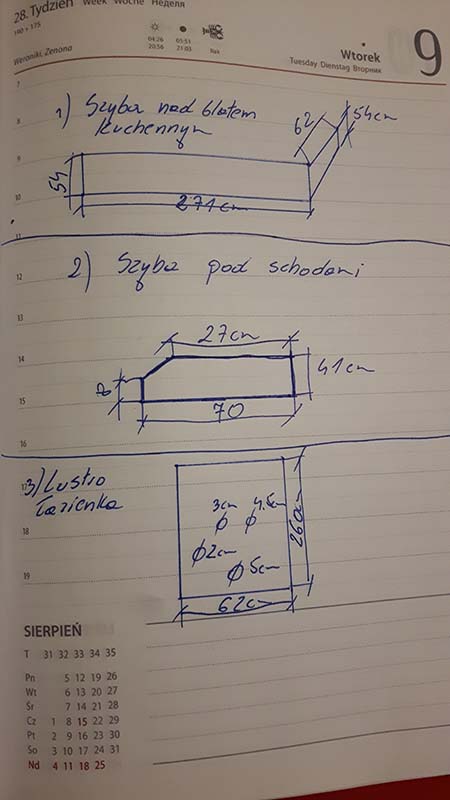 28. Tydzień Week Woche Неделя
190 + 175
04:26
20:56
03:51
21:03
Rak
Weroniki, Zenona
Wtorek
Tuesday Dienstag Вторник
9
7
8
9
10
11
12
13
14
15
16
17
18
19
1) Szyba nad blatem
kuchennym
62
54cm
54
271cm
2) Szyba pod schodami
27cm
41cm
70
3) Lustro
Łazienka
3cm 4.5cm
2cm
5cm
260cm
62cm
SIERPIEŃ
T 31 32 33 34 35
Pn 5 12 19 26
Wt 6 13 20 27
Śr 7 14 21 28
Cz 1 8 15 22 29
Pt 2 9 16 23 30
So 3 10 17 24 31
Nd 4 11 18 25